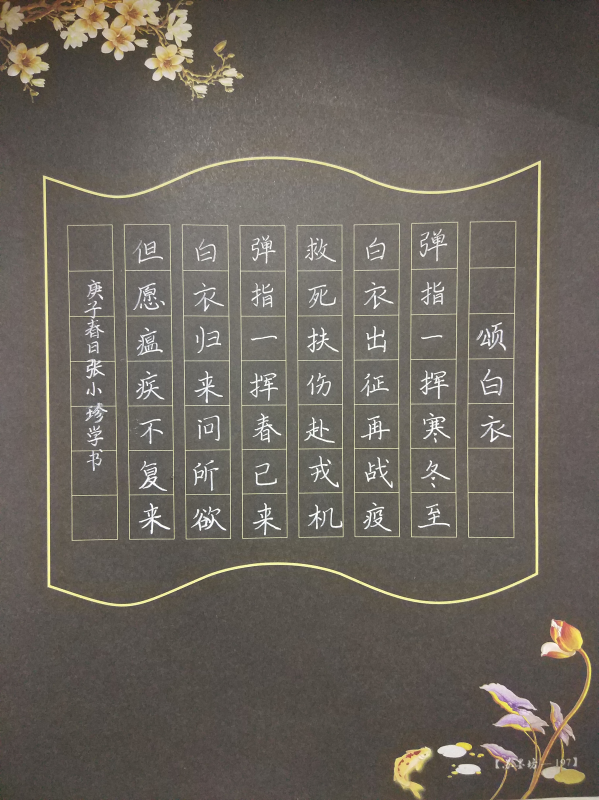 颂白衣
弹指一挥寒冬至
白衣出征再战疫
救死扶伤赴戎机
弹指一挥春已来
白衣归来问所欲
但愿瘟疾不复来
庚子春日张小珍学书
197